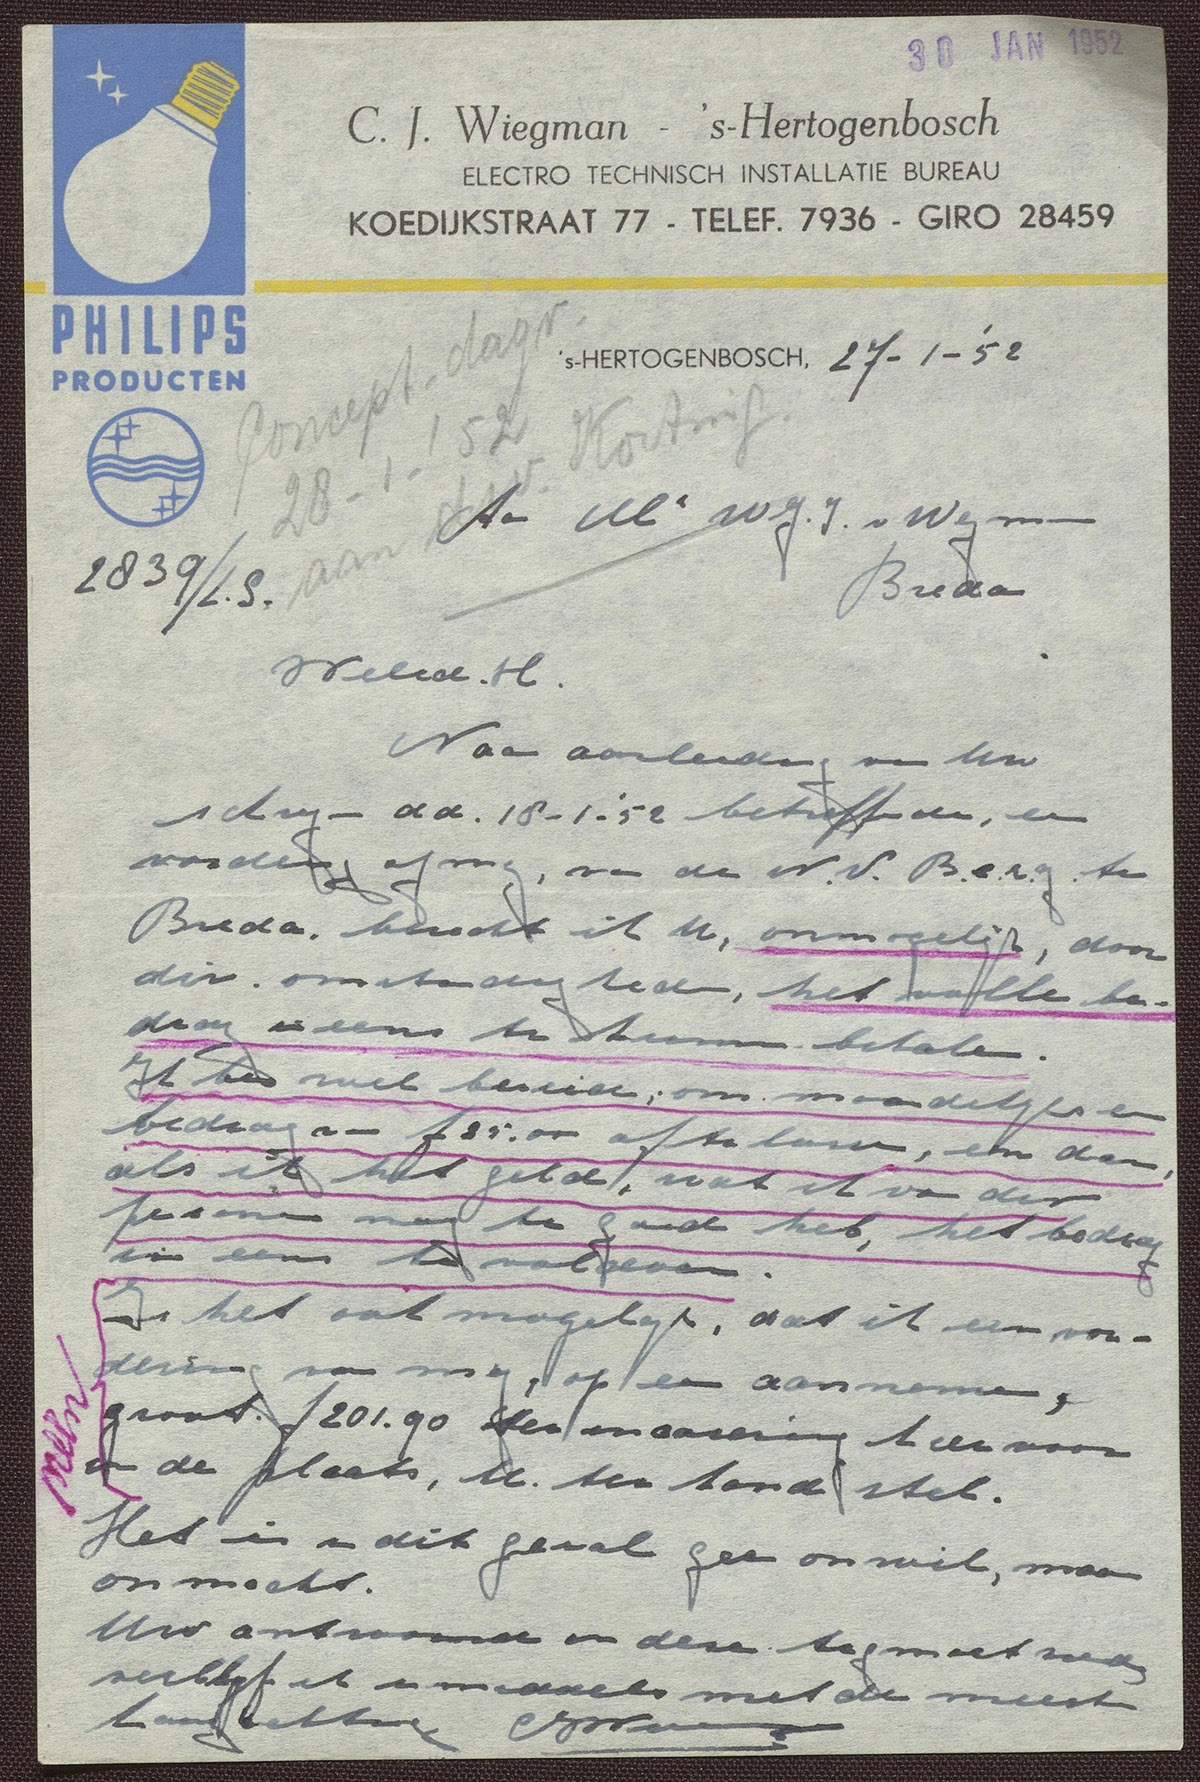 30 JAN 1952
C. J. Wiegman - 's-Hertogenbosch
ELECTRO TECHNISCH INSTALLATIE BUREAU
KOEDIJKSTRAAT 77 - TELEF. 7936 - GIRO 28459
PHILIPS
PRODUCTEN
's-HERTOGENBOSCH, 27-1-'52
Concept-dagv.
28-1-'52
aan d.w. Kortweg.
Aan Mr W.G.J. v Wym
Breda
2839/L.S.
Weled. H.
Naar aanleiding van Uw
schrijven dd. 18-1-'52 betreffende, een
vordering op mij, van de N.V. B.e.r.g. te
Breda. bericht ik U, onmogelijk, door
div. omstandigheden, het volle be-
drag ineens te kunnen betalen.
Ik ben wel bereid, om maandelijks een
bedrag van f 25.00 af te lossen, en dan,
als ik het geld, wat ik van der
personen nog te goed heb, het bedrag
in eens te voldoen.
Is het ook mogelijk, dat ik een vor-
dering van mij, op een aannemer,
groot f 201.90 ter incassering hier voor
in de plaats, U. ter hand stel.
neen
Het is in dit geval geen onwil, maar
onmacht.
Uw antwoord in deze tegemoet ziende
verblijf ik inmiddels met de meeste
hoogachting